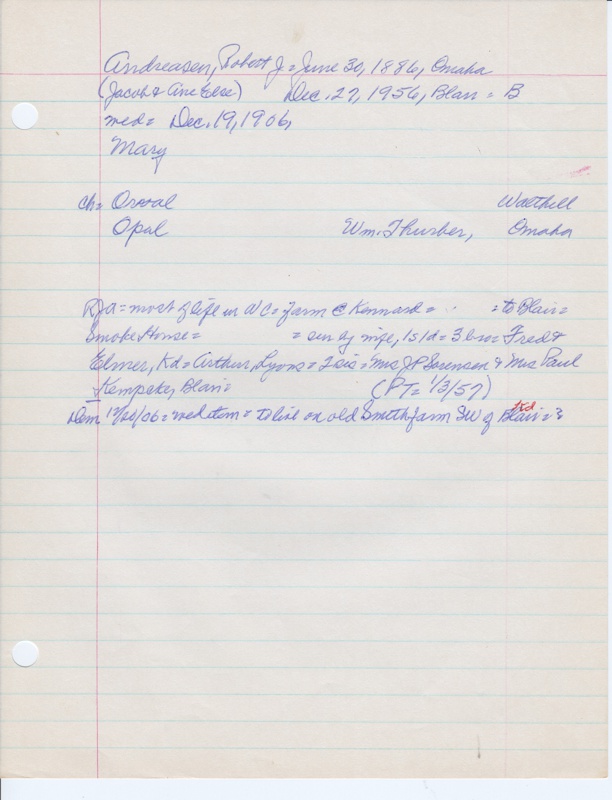 Andreasen, Robert J = June 30, 1886, Omaha
(Jacob & Ane Else) Dec. 27, 1956, Blair = B
med = Dec. 19, 1906,
Mary
ch = Orval Walthill
Opal Wm. Thurber, Omaha
RJA = most of life in WC = farm @ Kennard = = to Blair =
Smoke House = = sur by wife, 1s1d = 3 bro = Fred &
Elmer, Kd = Arthur, Lyons = 2 sis = Mrs JP Sorensen & Mrs Paul
Kempcke, Blair = (PT = 1/3/57)
Dem 12/20/06 = med item = to live on old Smith farm SW of Blair =
Kd